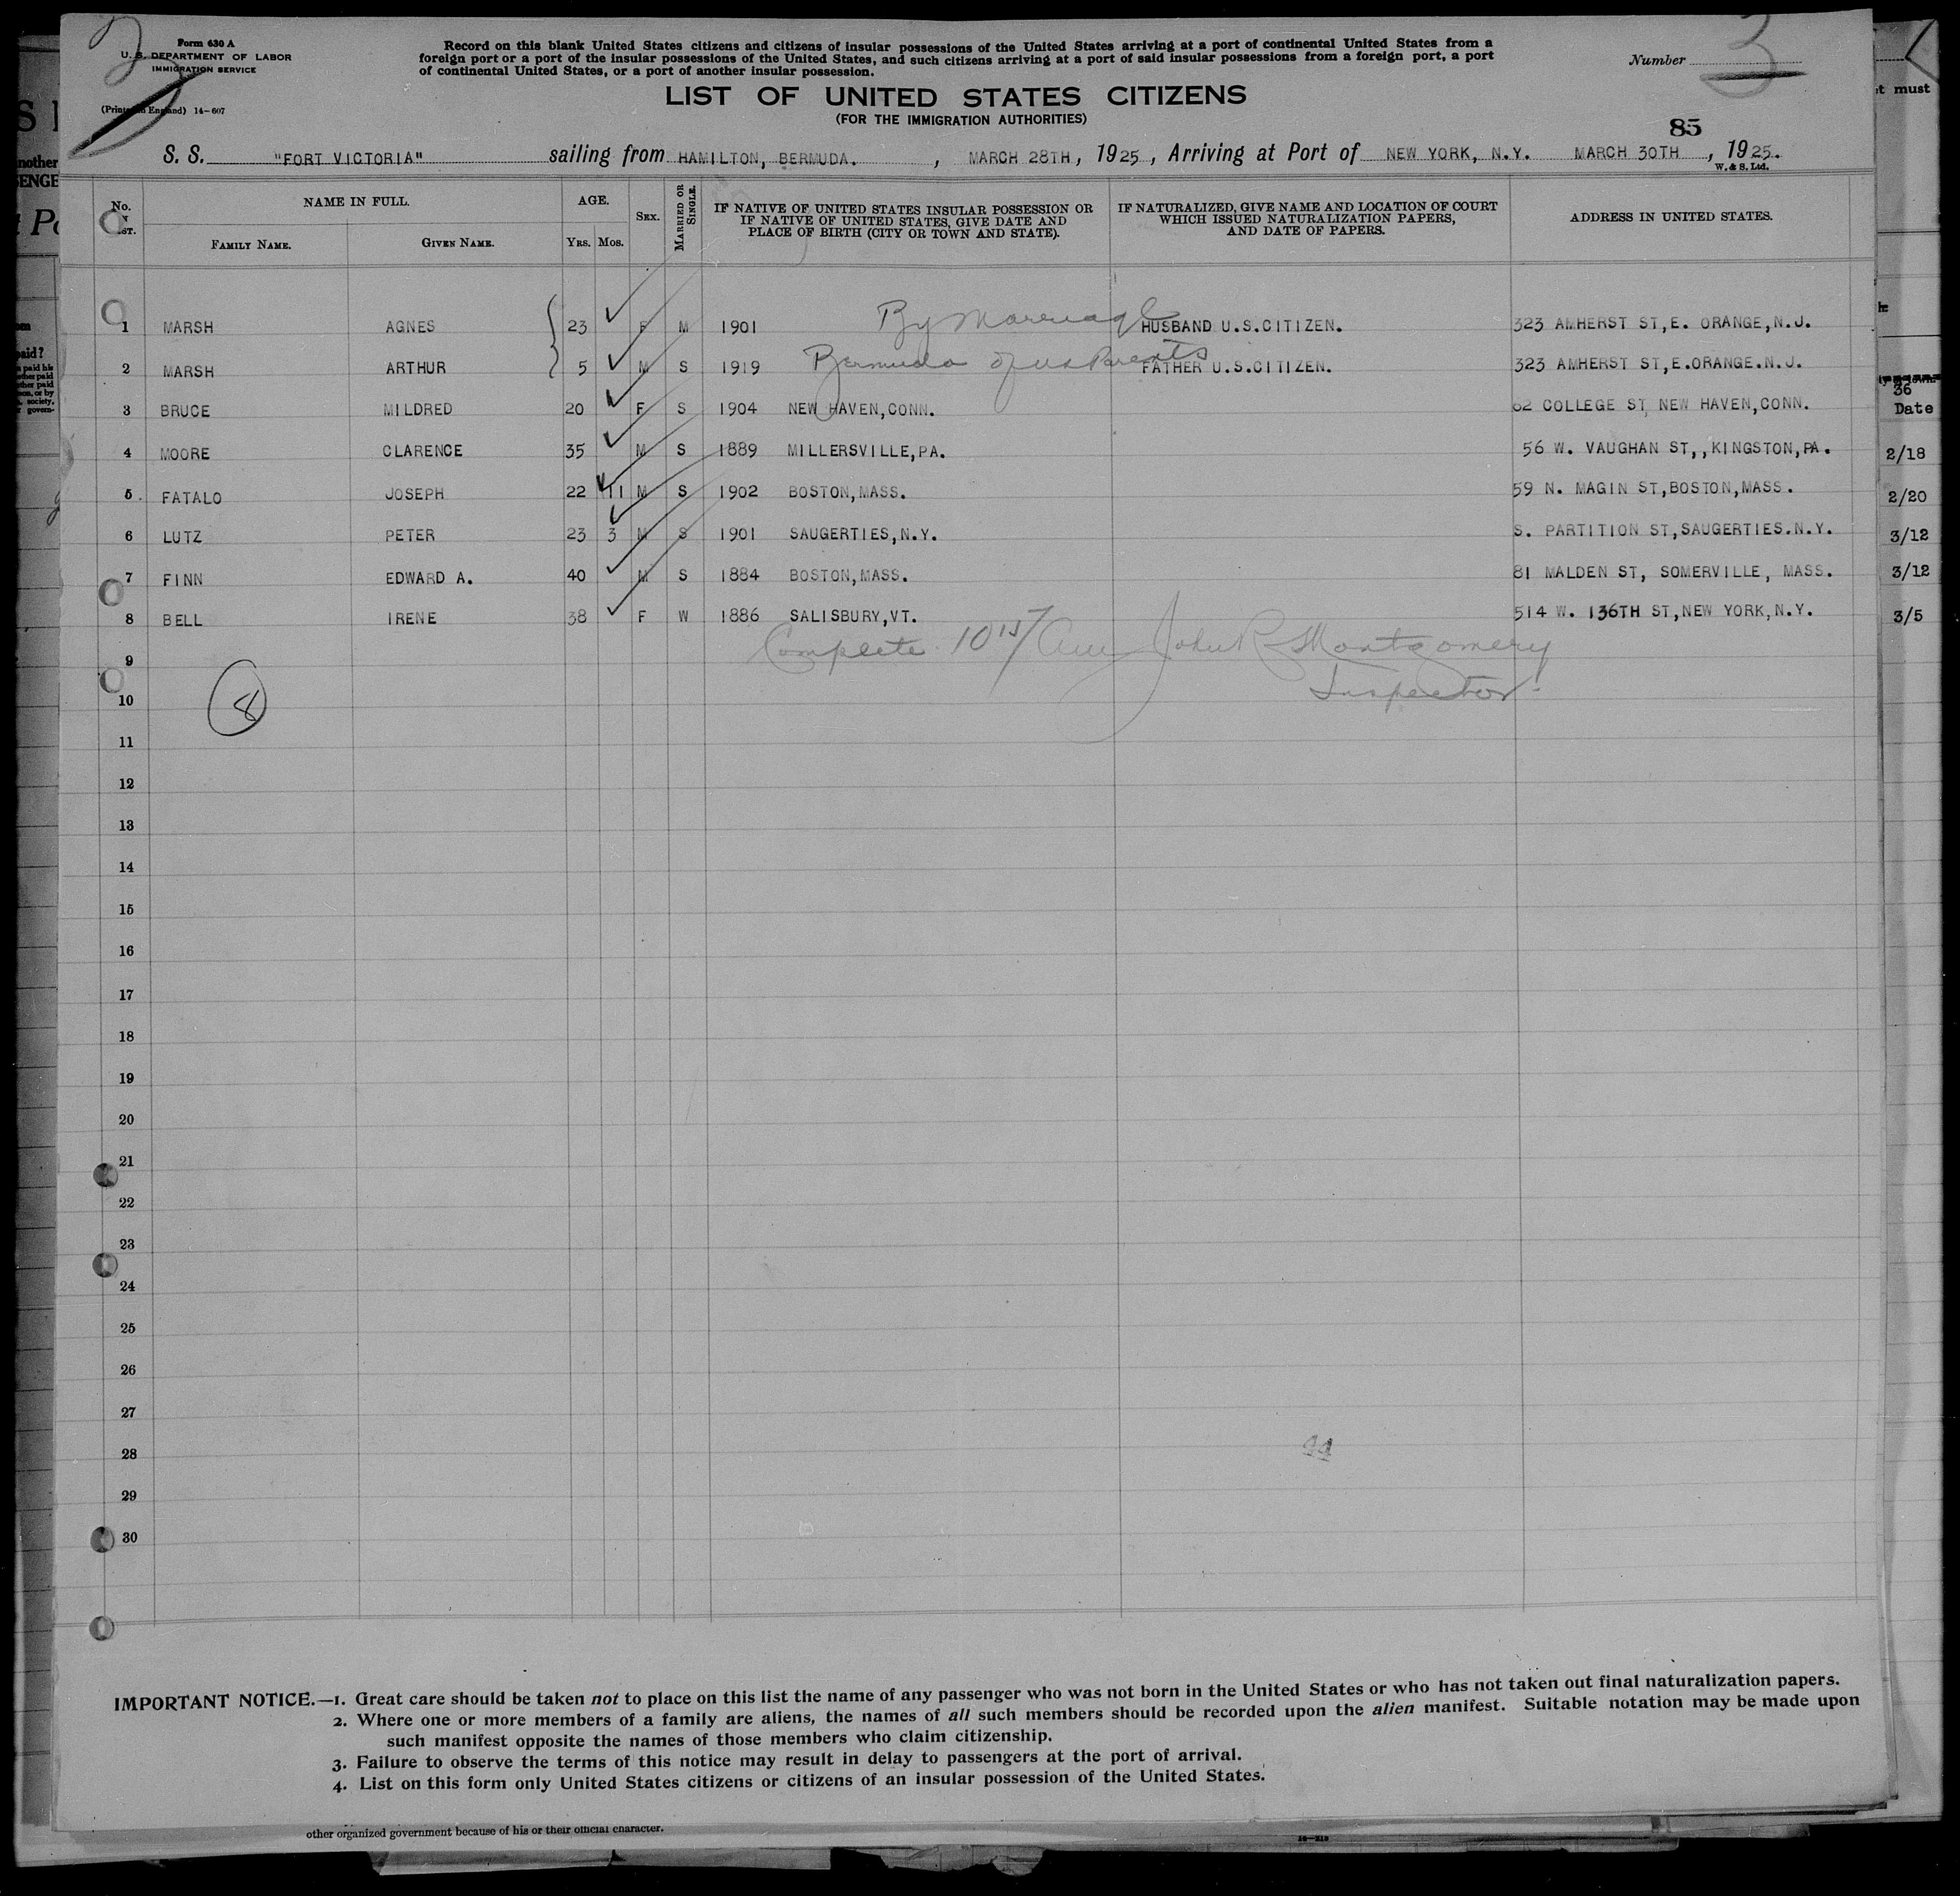 Form 630 A
U. S. DEPARTMENT OF LABOR
IMMIGRATION SERVICE
(Printed in England) 14-607
Record on this blank United States citizens and citizens of insular possessions of the United States arriving at a port of continental United States from a
foreign port or a port of the insular possessions of the United States, and such citizens arriving at a port of said insular possessions from a foreign port, a port
of continental United States, or a port of another insular possession.
Number 3
LIST OF UNITED STATES CITIZENS
(FOR THE IMMIGRATION AUTHORITIES)
85
S. S. "FORT VICTORIA" sailing from HAMILTON, BERMUDA. , MARCH 28TH, 1925, Arriving at Port of NEW YORK, N.Y. MARCH 30TH , 1925.
W. & S. Ltd.
No. ST. NAME IN FULL. FAMILY NAME. GIVEN NAME. AGE. YRS. MOS. SEX. MARRIED OR SINGLE. IF NATIVE OF UNITED STATES INSULAR POSSESSION OR IF NATIVE OF UNITED STATES, GIVE DATE AND PLACE OF BIRTH (CITY OR TOWN AND STATE). IF NATURALIZED, GIVE NAME AND LOCATION OF COURT WHICH ISSUED NATURALIZATION PAPERS, AND DATE OF PAPERS. ADDRESS IN UNITED STATES.
1 MARSH AGNES 23 F M 1901 By Marriage HUSBAND U.S.CITIZEN. 323 AMHERST ST,E. ORANGE,N.J.
2 MARSH ARTHUR 5 M S 1919 Bermuda of US Parents FATHER U.S.CITIZEN. 323 AMHERST ST,E.ORANGE.N.J.
3 BRUCE MILDRED 20 F S 1904 NEW HAVEN,CONN. 62 COLLEGE ST, NEW HAVEN,CONN.
4 MOORE CLARENCE 35 M S 1889 MILLERSVILLE,PA. 56 W. VAUGHAN ST,,KINGSTON,PA.
5 FATALO JOSEPH 22 11 M S 1902 BOSTON,MASS. 59 N. MAGIN ST,BOSTON,MASS.
6 LUTZ PETER 23 3 M S 1901 SAUGERTIES,N.Y. S. PARTITION ST,SAUGERTIES.N.Y.
7 FINN EDWARD A. 40 M S 1884 BOSTON,MASS. 81 MALDEN ST, SOMERVILLE, MASS.
8 BELL IRENE 38 F W 1886 SALISBURY,VT. 514 W. 136TH ST,NEW YORK,N.Y.
9 Complete 10 15/ am John R Montgomery
10 8 Inspector
11
12
13
14
15
16
17
18
19
20
21
22
23
24
25
26
27
28 44
29
30
IMPORTANT NOTICE.—1. Great care should be taken not to place on this list the name of any passenger who was not born in the United States or who has not taken out final naturalization papers.
2. Where one or more members of a family are aliens, the names of all such members should be recorded upon the alien manifest. Suitable notation may be made upon
such manifest opposite the names of those members who claim citizenship.
3. Failure to observe the terms of this notice may result in delay to passengers at the port of arrival.
4. List on this form only United States citizens or citizens of an insular possession of the United States.
other organized government because of his or their official character.
t must
36
Date
2/18
2/20
3/12
3/12
3/5